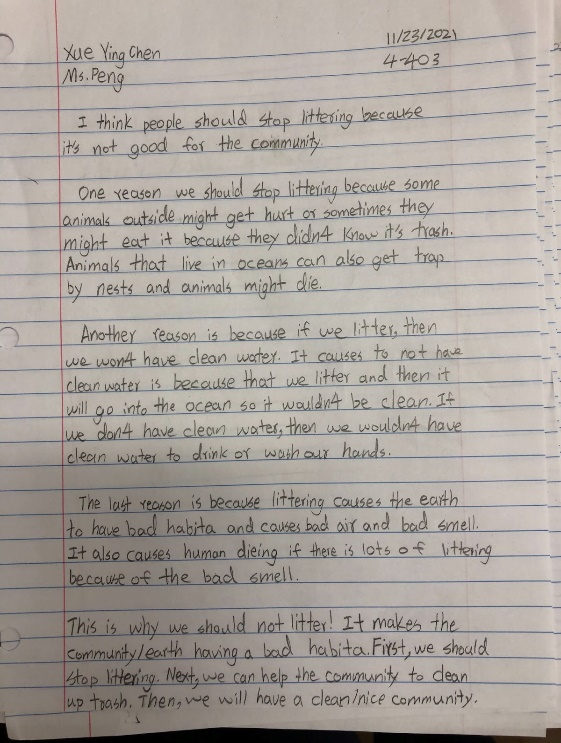 11/23/2021
Xue Ying Chen
4-403
Ms. Peng
I think people should stop littering because
it's not good for the community.
One reason we should stop littering because some
animals outside might get hurt or sometimes they
might eat it because they didn4 know it's trash.
Animals that live in oceans can also get trap
by nests and animals might die.
Another reason is because if we litter, then
we won4 have clean water. It causes to not have
clean water is because that we litter and then it
will go into the ocean so it wouldn4 be clean. If
we don4 have clean water, then we wouldn4 have
clean water to drink or wash our hands.
The last reason is because littering causes the earth
to have bad habita and causes bad air and bad smell.
It also causes human dieing if there is lots of littering
because of the bad smell.
This is why we should not litter! It makes the
community/earth having a bad habita. First, we should
stop littering. Next, we can help the community to clean
up trash. Then, we will have a clean/nice community.